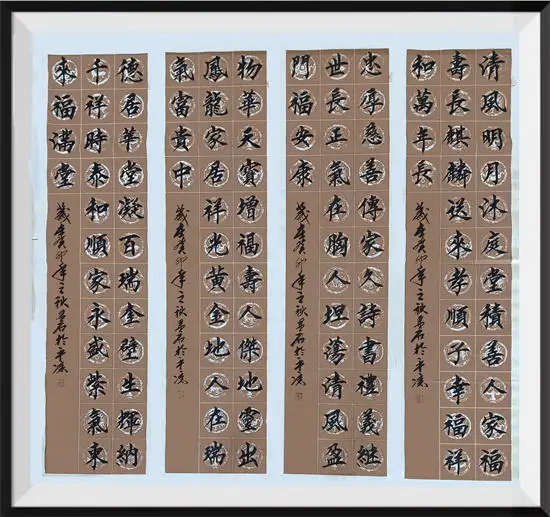 清風明月沐庭堂積善人家福
壽長麒麟送來孝順子幸福祥
和萬年長
歲在癸卯年立秋石於平涼
忠厚慈善傳家久詩書禮義繼
世長正氣在胸人坦蕩清風盈
門福安康
歲在癸卯年立秋石於平涼
物華天寶增福壽人傑地靈出
鳳龍家居祥光黃金地人在瑞
氣富貴中
歲在癸卯年立秋石於平涼
德居華堂凝百瑞奎壁生輝納
千祥時泰和順家永盛紫氣東
來福滿堂
歲在癸卯年立秋石於平涼